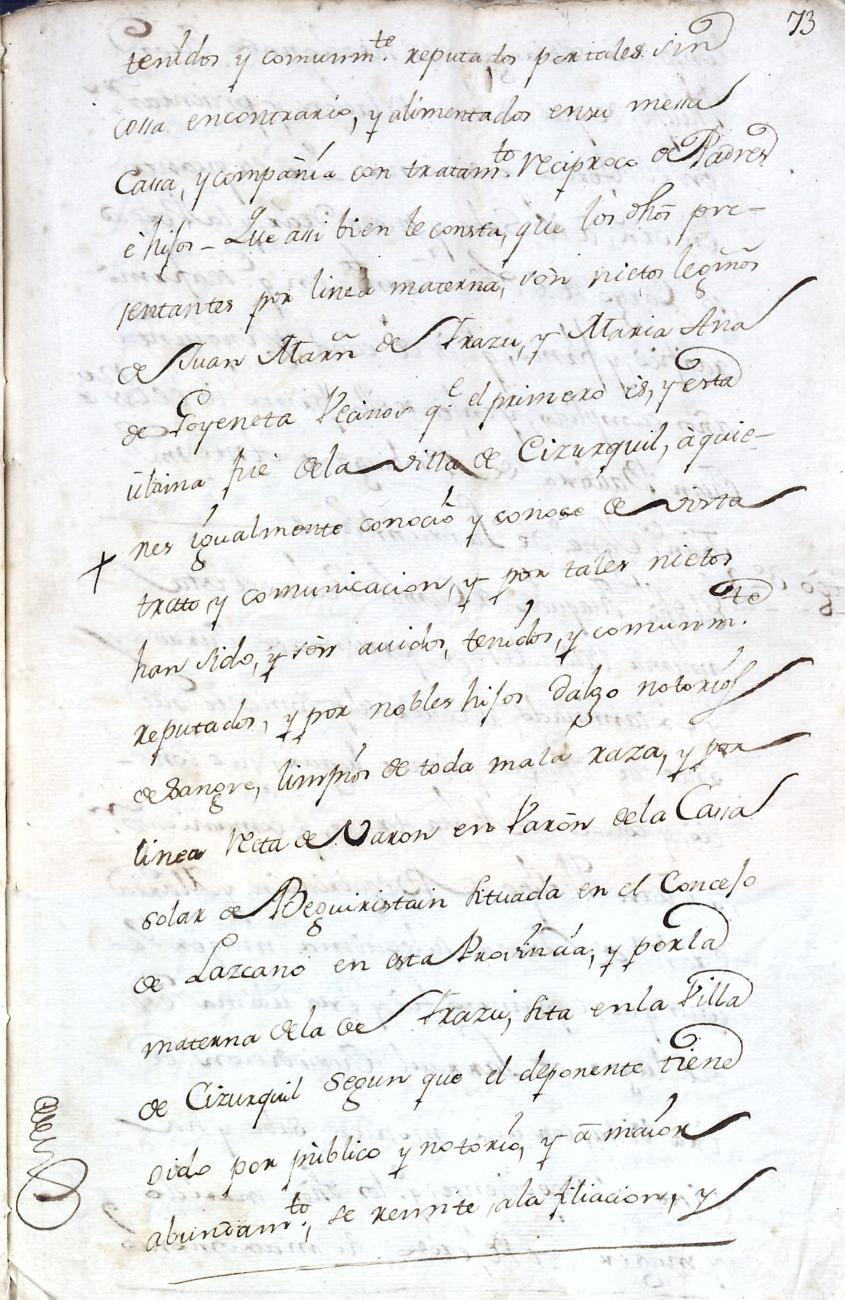 73
tenidos y comunm.te reputados por tales sin
cossa encontrario, y alimentados ensu messa
Cassa, y compañia con tratam.to Reciproco de Padres
é hijos – Que assi bien le consta, que los dhos pre-
sentantes por linea materna, son nietos legmos
de Juan Marñ de Yrazu, y Maria Ana
de Goyeneta Vecinos qe el primero es, y esta
ultima fue dela villa de Cizurquil, àquie-
nes igualmente conoció y conose de vista
trato, y comunicacion, y por tales nietos
han sido, y son avidos, tenidos, y comunm.te
reputados, y por nobles hijos dalgo notorios
de sangre, limpios de toda mala raza, y por
linea Recta de Varon en Varon dela Cassa
solar de Beguiristain situada en el Concejo
de Lazcano en esta Provincia, y porla
materna dela de Yrazu, sita enla Villa
de Cizurquil segun que el deponente tiene
oido por pùblico y notorio, y à maior
abundam.to, se remite ala filiacion, y